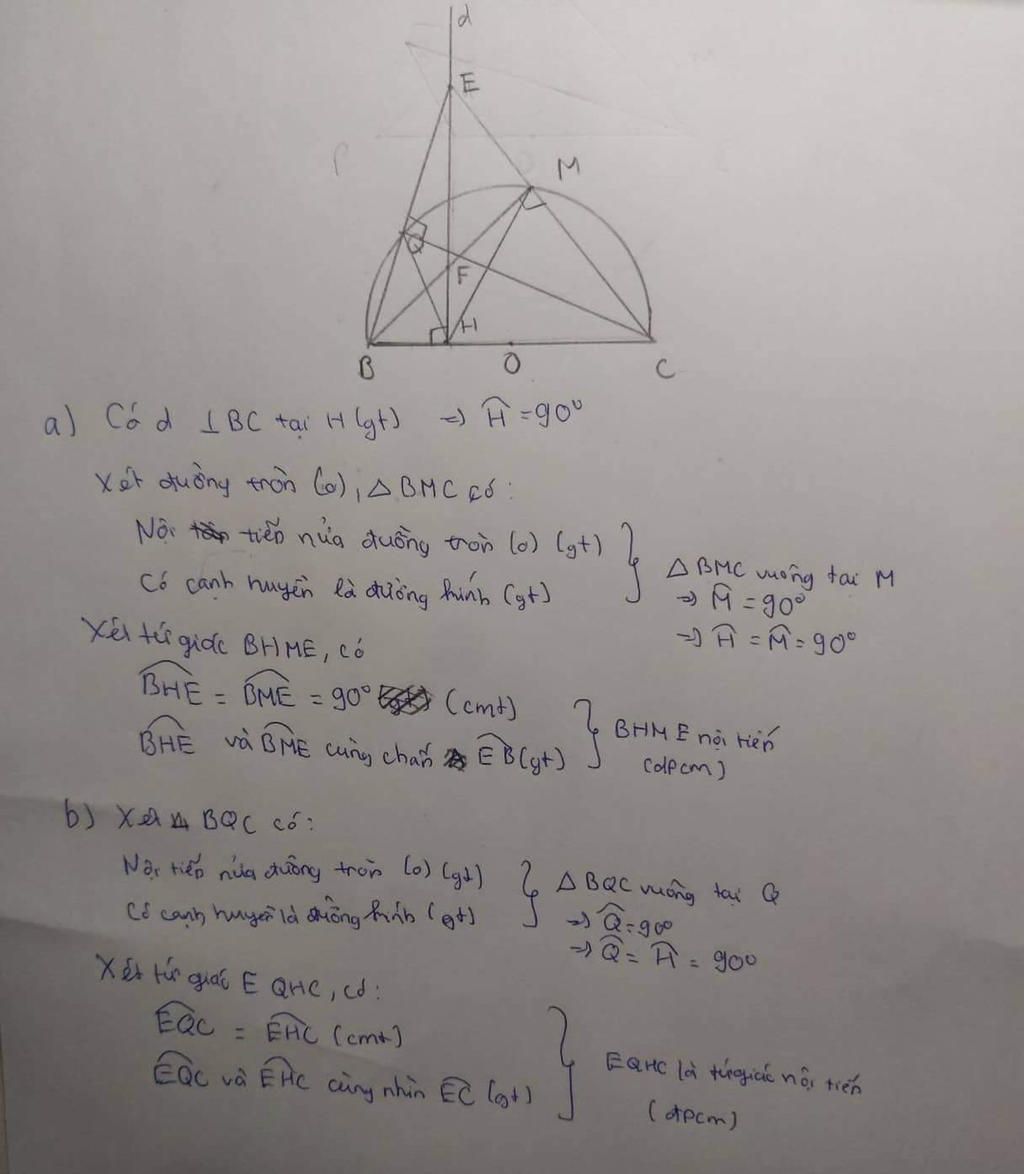 d
E
P
M
Q
F
H
B
O
C
a) Có d ⊥ BC tại H (gt) => Ĥ = 90°
Xét đường tròn (O), △ BMC có:
Nội tiếp nửa đường tròn (O) (gt)
Có cạnh huyền là đường kính (gt)
△ BMC vuông tại M
=> M̂ = 90°
=> Ĥ = M̂ = 90°
Xét tứ giác BHME, có
B̂HE = B̂ME = 90° (cmt)
B̂HE và B̂ME cùng chắn ÊB (gt)
BHME nội tiếp
(đpcm)
b) Xét △ BQC có:
Nội tiếp nửa đường tròn (O) (gt)
Có cạnh huyền là đường kính (gt)
△ BQC vuông tại Q
=> Q̂ = 90°
=> Q̂ = Ĥ = 90°
Xét tứ giác E QHC, có:
ÊQC = ÊHC (cmt)
ÊQC và ÊHC cùng nhìn ÊC (gt)
EQHC là tứ giác nội tiếp
(đpcm)